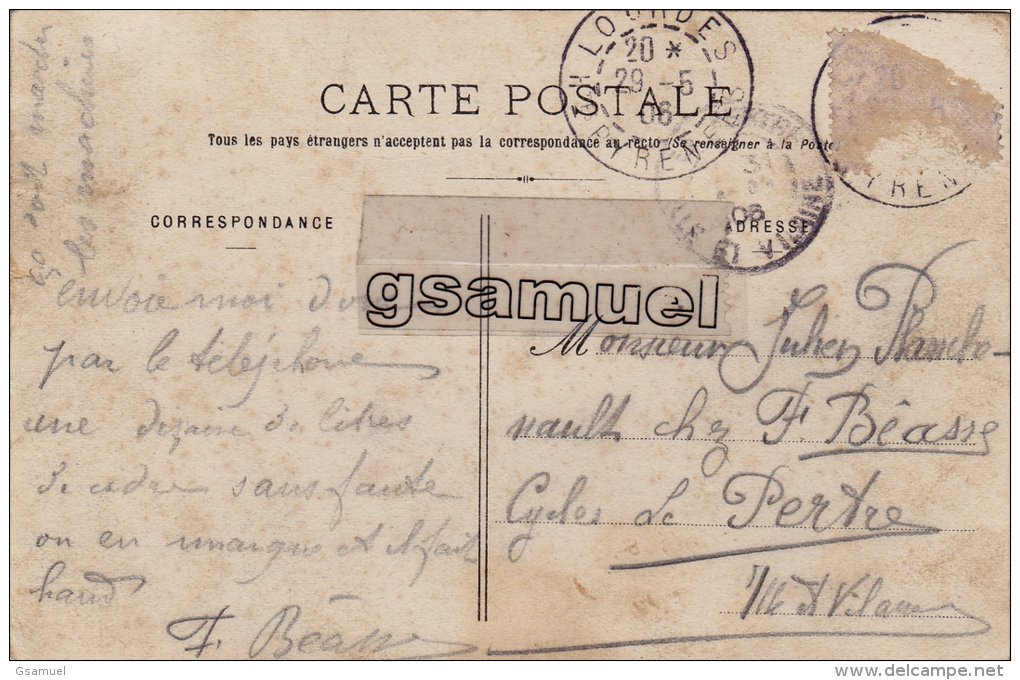 CARTE POSTALE
Tous les pays étrangers n'acceptent pas la correspondance au recto (Se renseigner à la Poste
CORRESPONDANCE
ADRESSE
LOURDES
20 *
29 -5
06
PYRENEES
31
06
ILLE ET VILAINE
PYREN
gsamuel
ça doit marcher
les machines
envoie moi donc
par le téléphone
une dizaine de litres
de cidre sans faute
on en manque et il fait
haud
F. Béasse
Monsieur Julien Plancho-
nault chez F. Béasse
Cycles Le Pertre
Ille et Vilaine
Gsamuel
www.delcampe.net